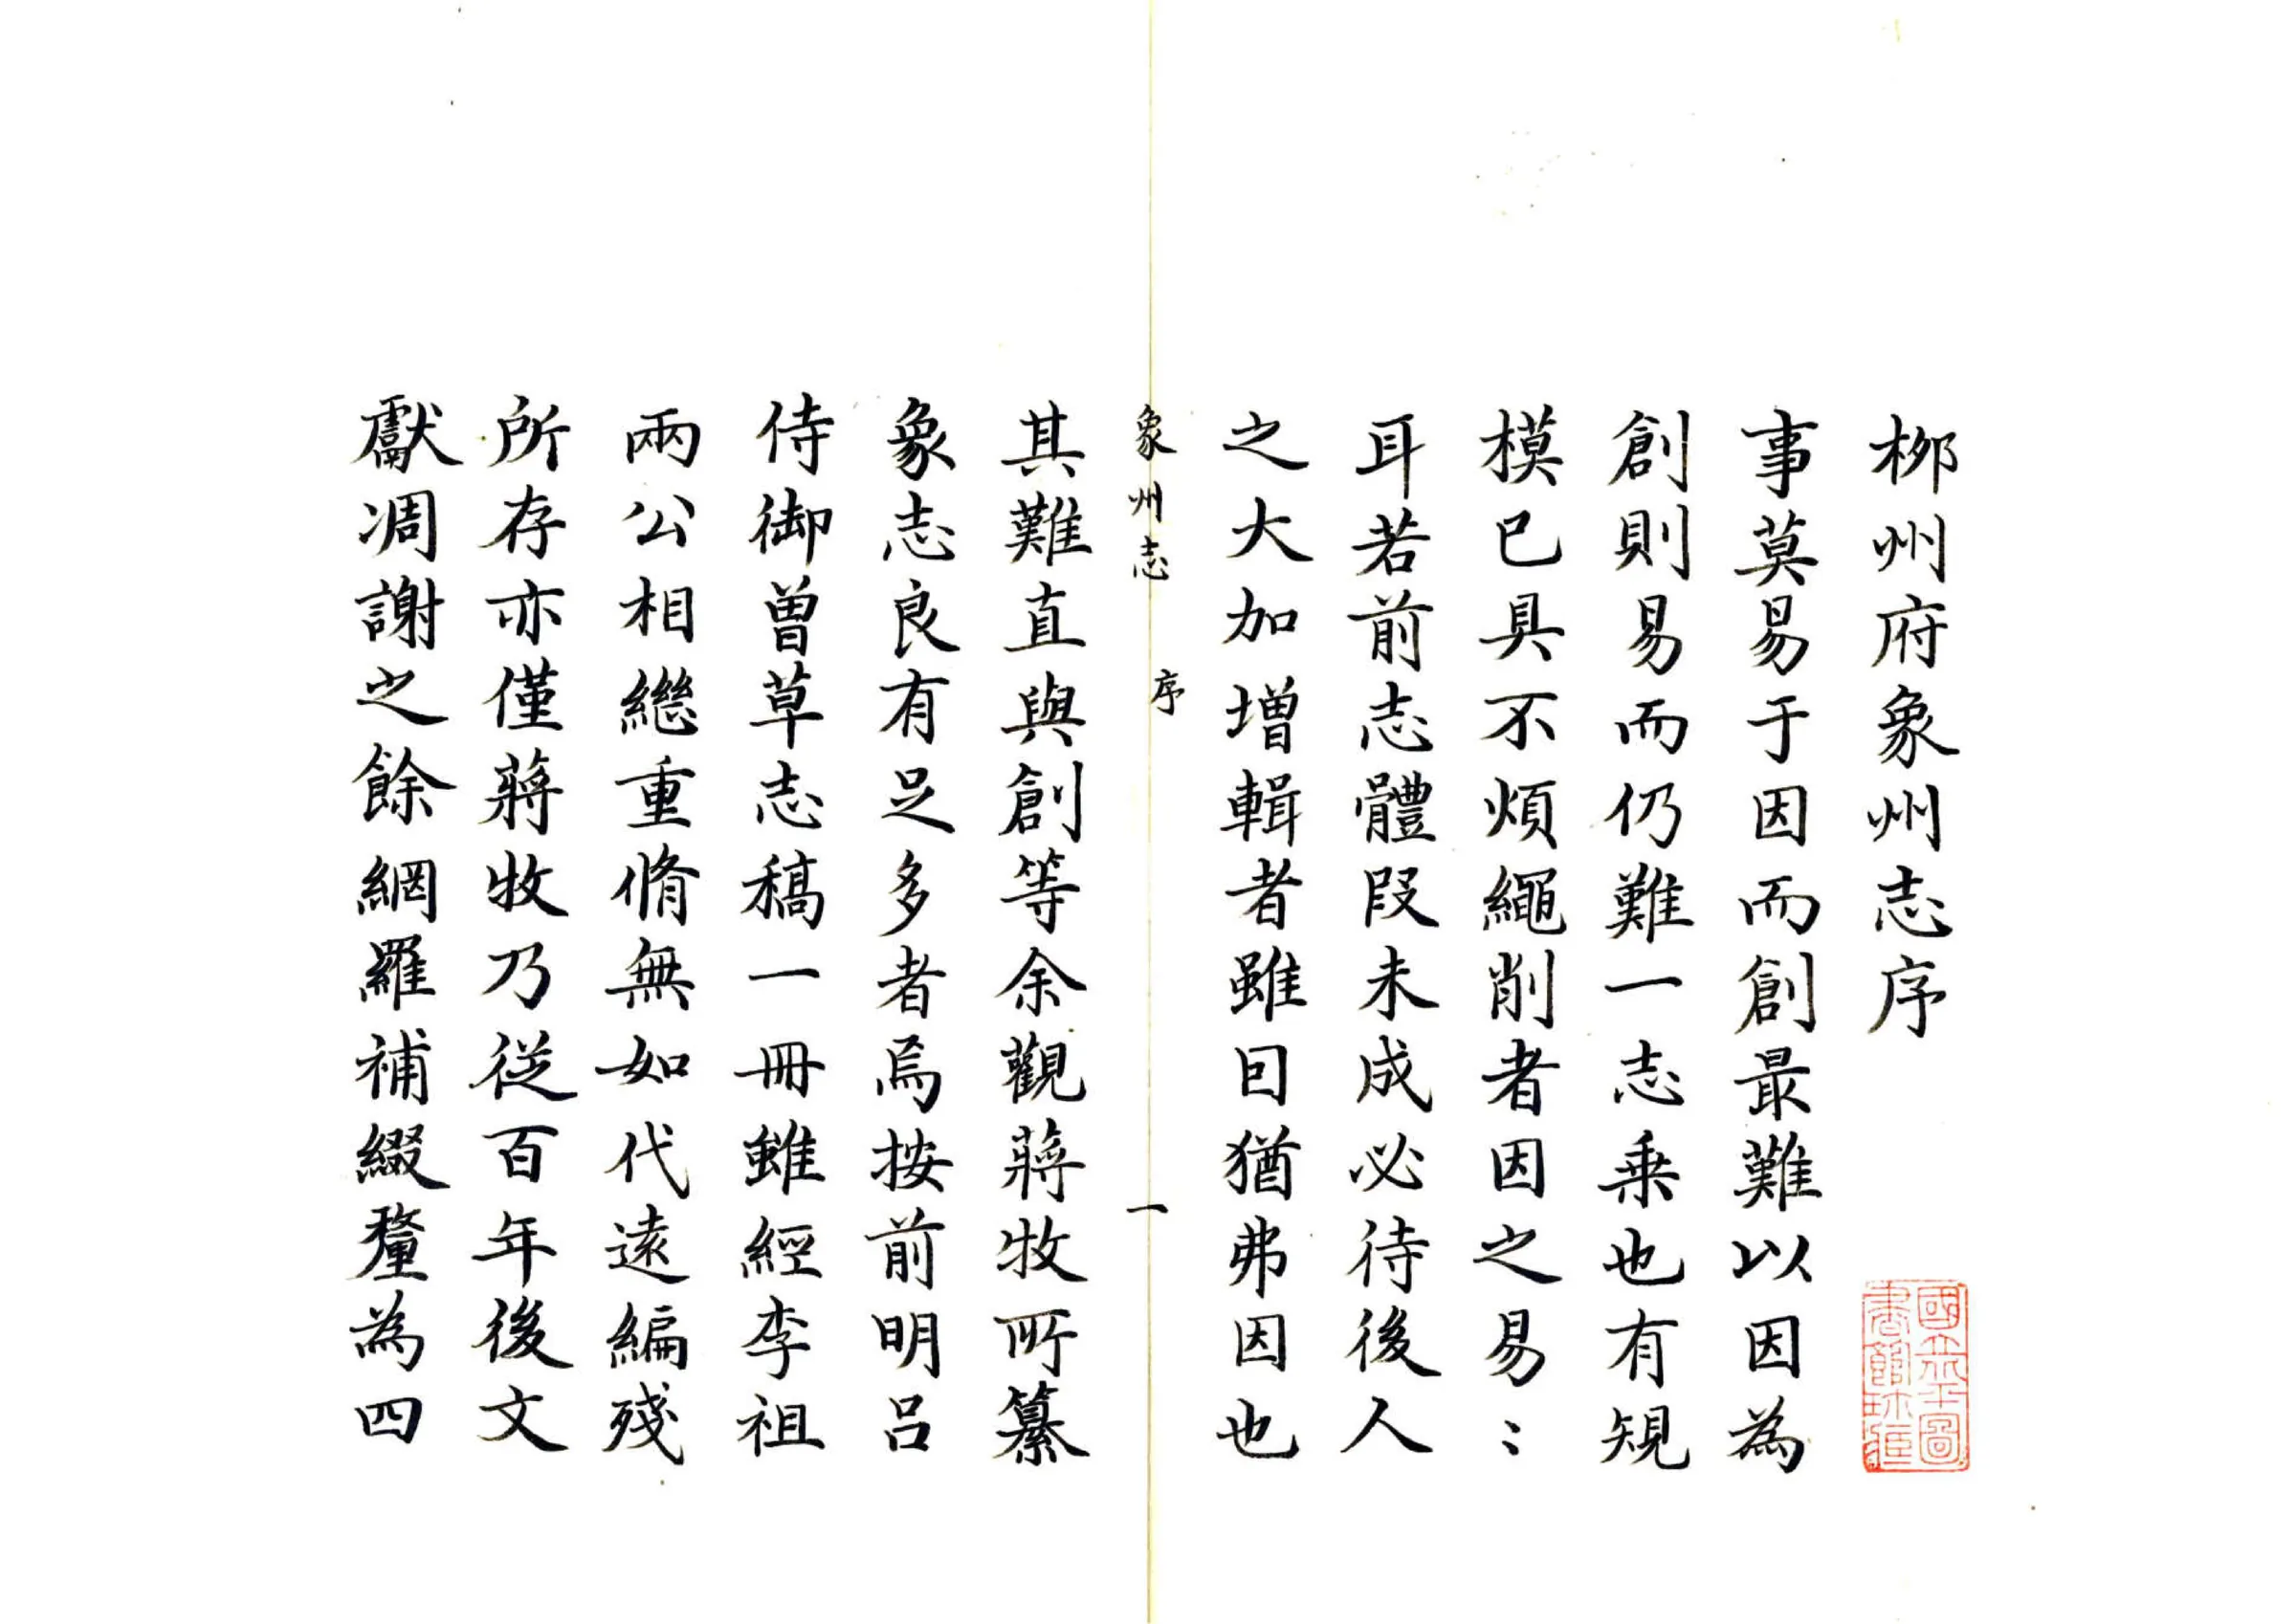 柳州府象州志序
事莫易于因而創最難以因為
創則易而仍難一志乗也有規
模已具不煩繩削者因之易〻
耳若前志體段未成必待後人
之大加增輯者雖曰猶弗因也
象州志 序 一
其難直與創等余觀蔣牧所纂
象志良有足多者焉按前明呂
侍御曾草志稿一冊雖經李祖
兩公相繼重脩無如代遠編殘
所存亦僅蔣牧乃従百年後文
獻凋謝之餘網羅補綴釐為四
國立北平圖書館珍藏